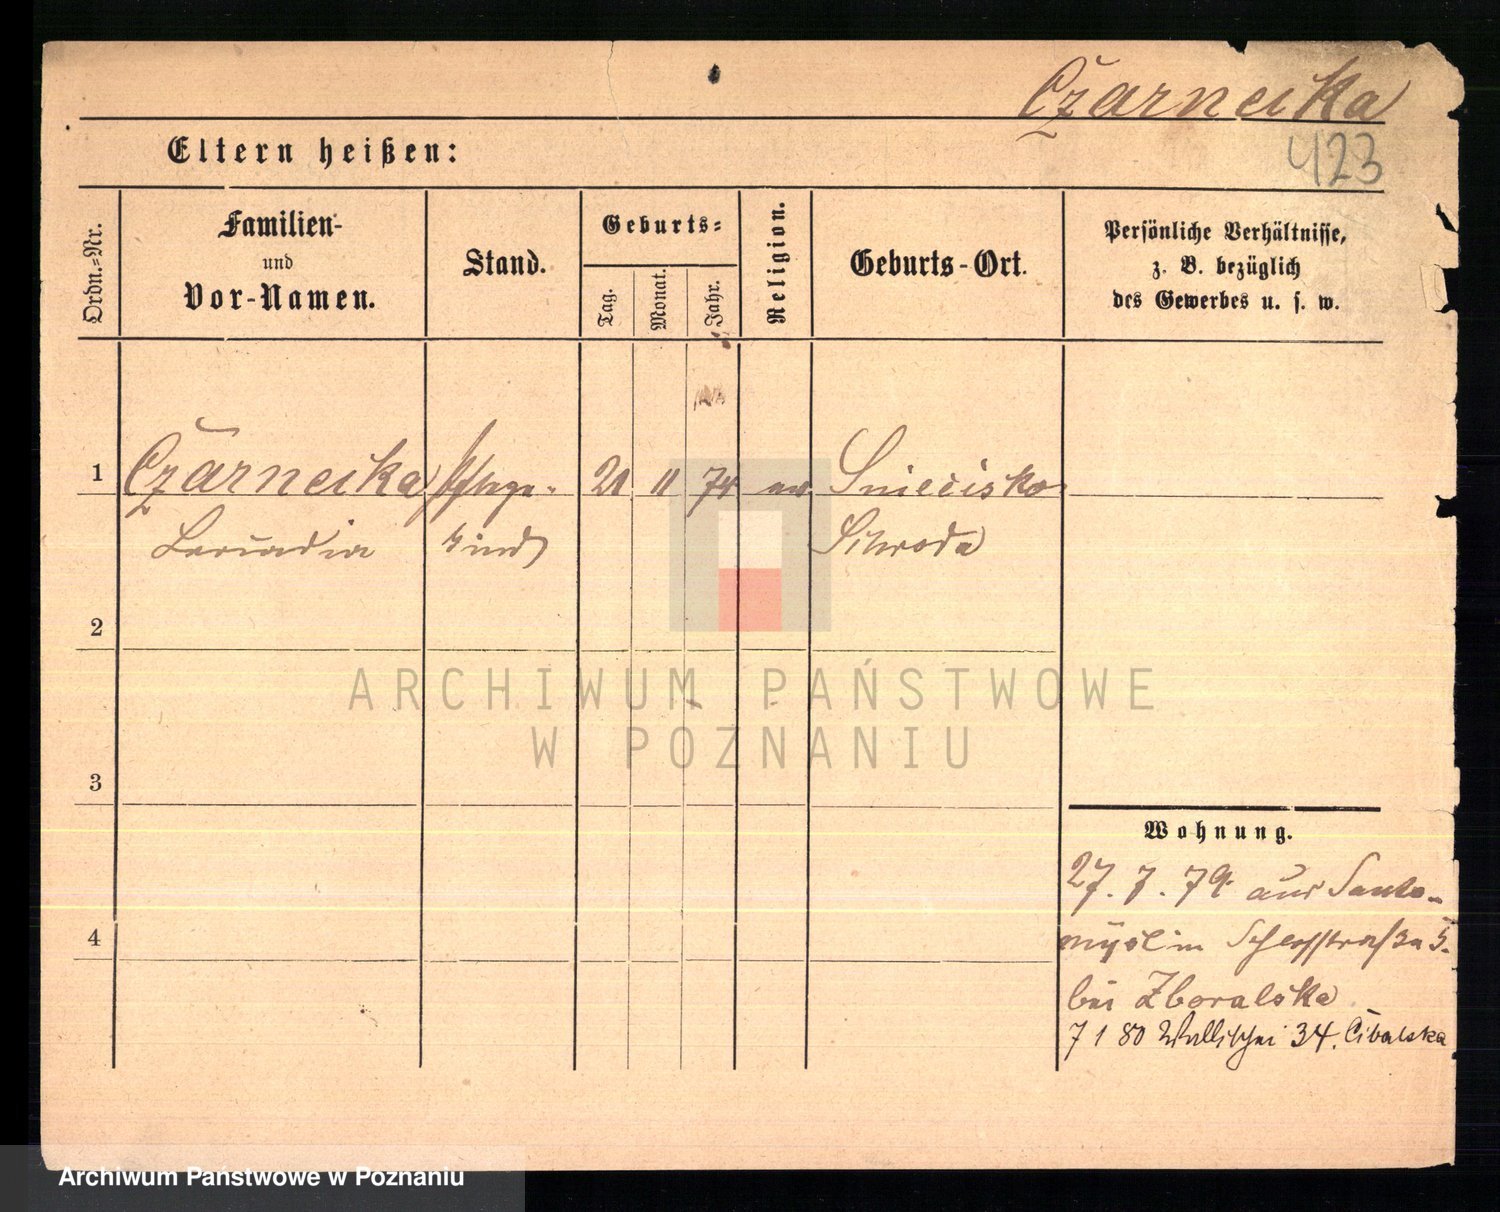 Czarnecka
423
Eltern heißen:
Ordn.=Nr.
Familien-
und
Vor-Namen.
Stand.
Geburts=
Tag.
Monat.
Jahr.
Religion.
Geburts-Ort.
Persönliche Verhältnisse,
z. B. bezüglich
des Gewerbes u. s. w.
1 Czarnecka Pflege- 21 11 74 Snieciska
kind Schroda
2
3
4
Wohnung.
27. 7. 79 aus Santo-
myslin 5.
bei Zboralska
7 1 80 Wallischei 34. Cibalska
ARCHIWUM PAŃSTWOWE
W POZNANIU
Archiwum Państwowe w Poznaniu